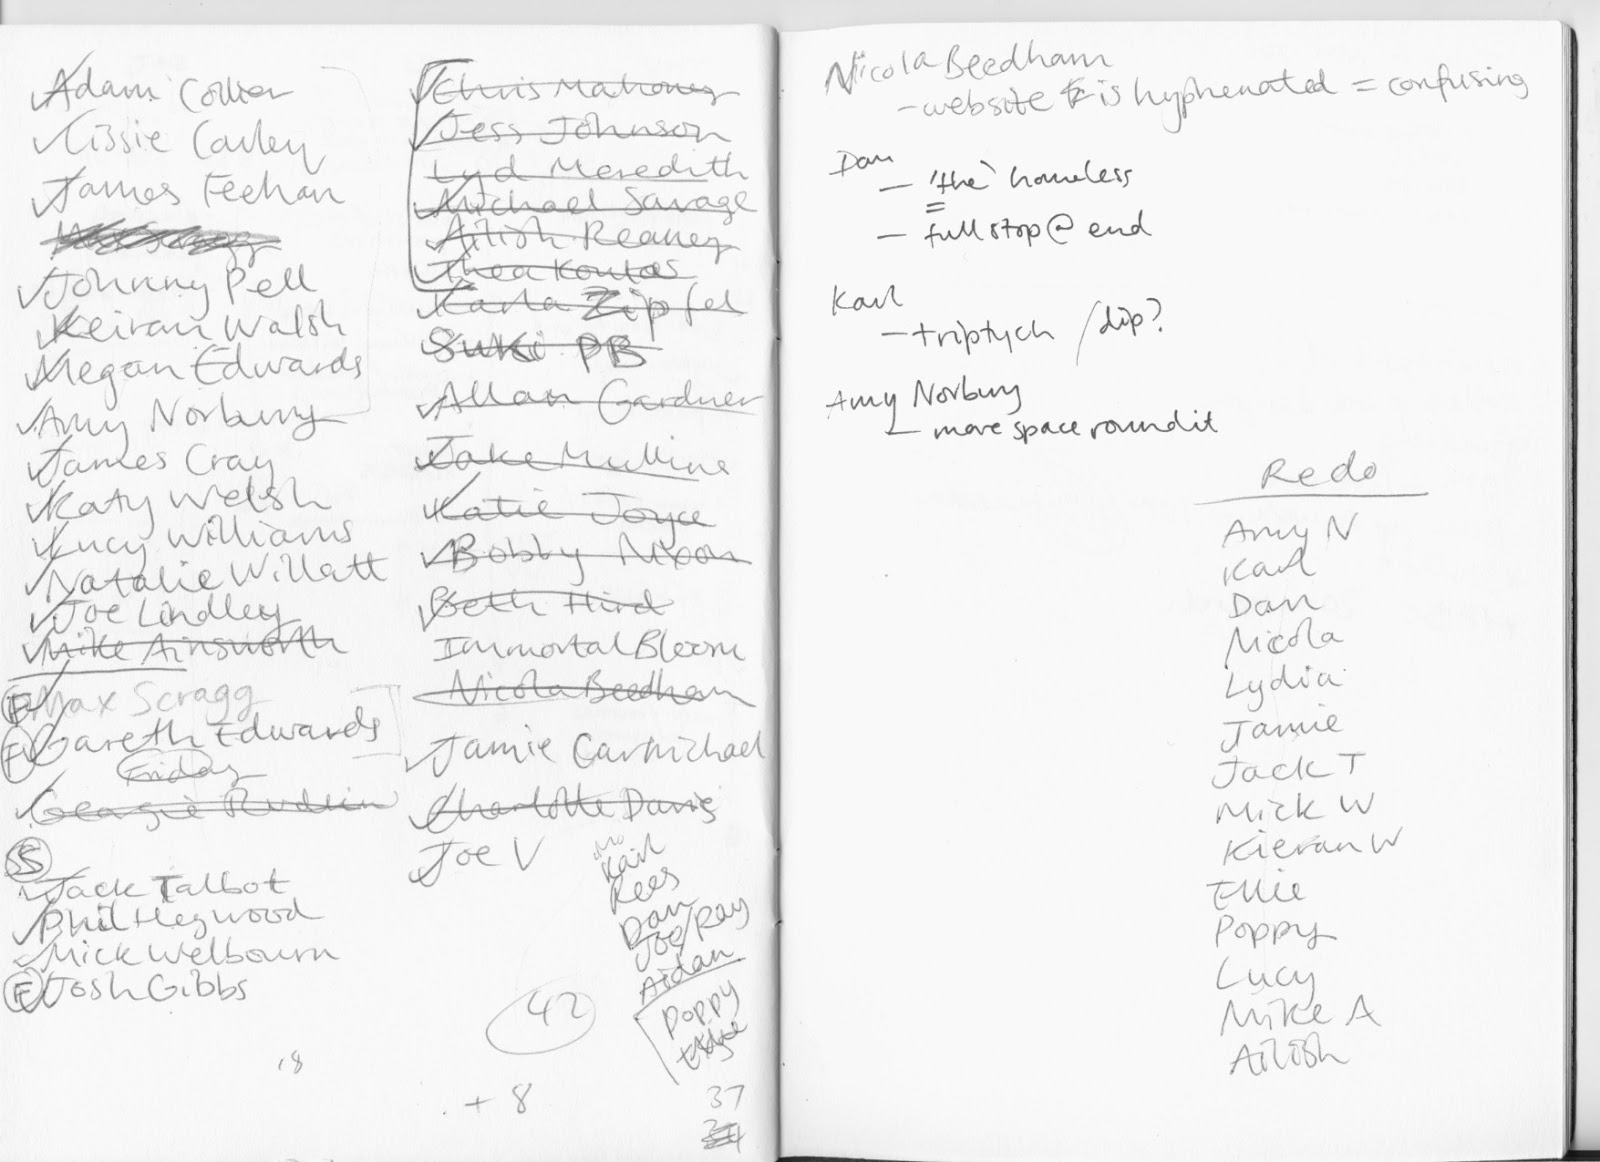 Adam Collier
Cissie Carley
James Feehan
Johnny Pell
Keiran Walsh
Megan Edwards
Amy Norbury
James Cray
Katy Welsh
Lucy Williams
Natalie Willatt
Joe Lindley
Mike Ainsworth
F Max Scragg
F Gareth Edwards
Friday
Georgie Rudkin
S
Jack Talbot
Phil Heywood
Mick Welbourn
F Josh Gibbs
Chris Mahoney
Jess Johnson
Lyd Meredith
Michael Savage
Ailish Reaney
Thea Kontos
Karla Zipfel
Suki PB
Allan Gardner
Jake Mullins
Katie Joyce
Bobby Nixon
Beth Hird
Immortal Bloom
Nicola Beedham
Jamie Carmichael
Charlotte Davis
Joe V
Karl
Rees
Dan
Joe/Ray
Aidan
Poppy
42
+ 8
37
Nicola Beedham
- website is hyphenated = confusing
Dan
- 'the' homeless
- full stop @ end
Karl
- triptych / dip?
Amy Norbury
- more space round it
Redo
Amy N
Karl
Dan
Nicola
Lydia
Jamie
Jack T
Mick W
Kieran W
Ellie
Poppy
Lucy
Mike A
Ailish